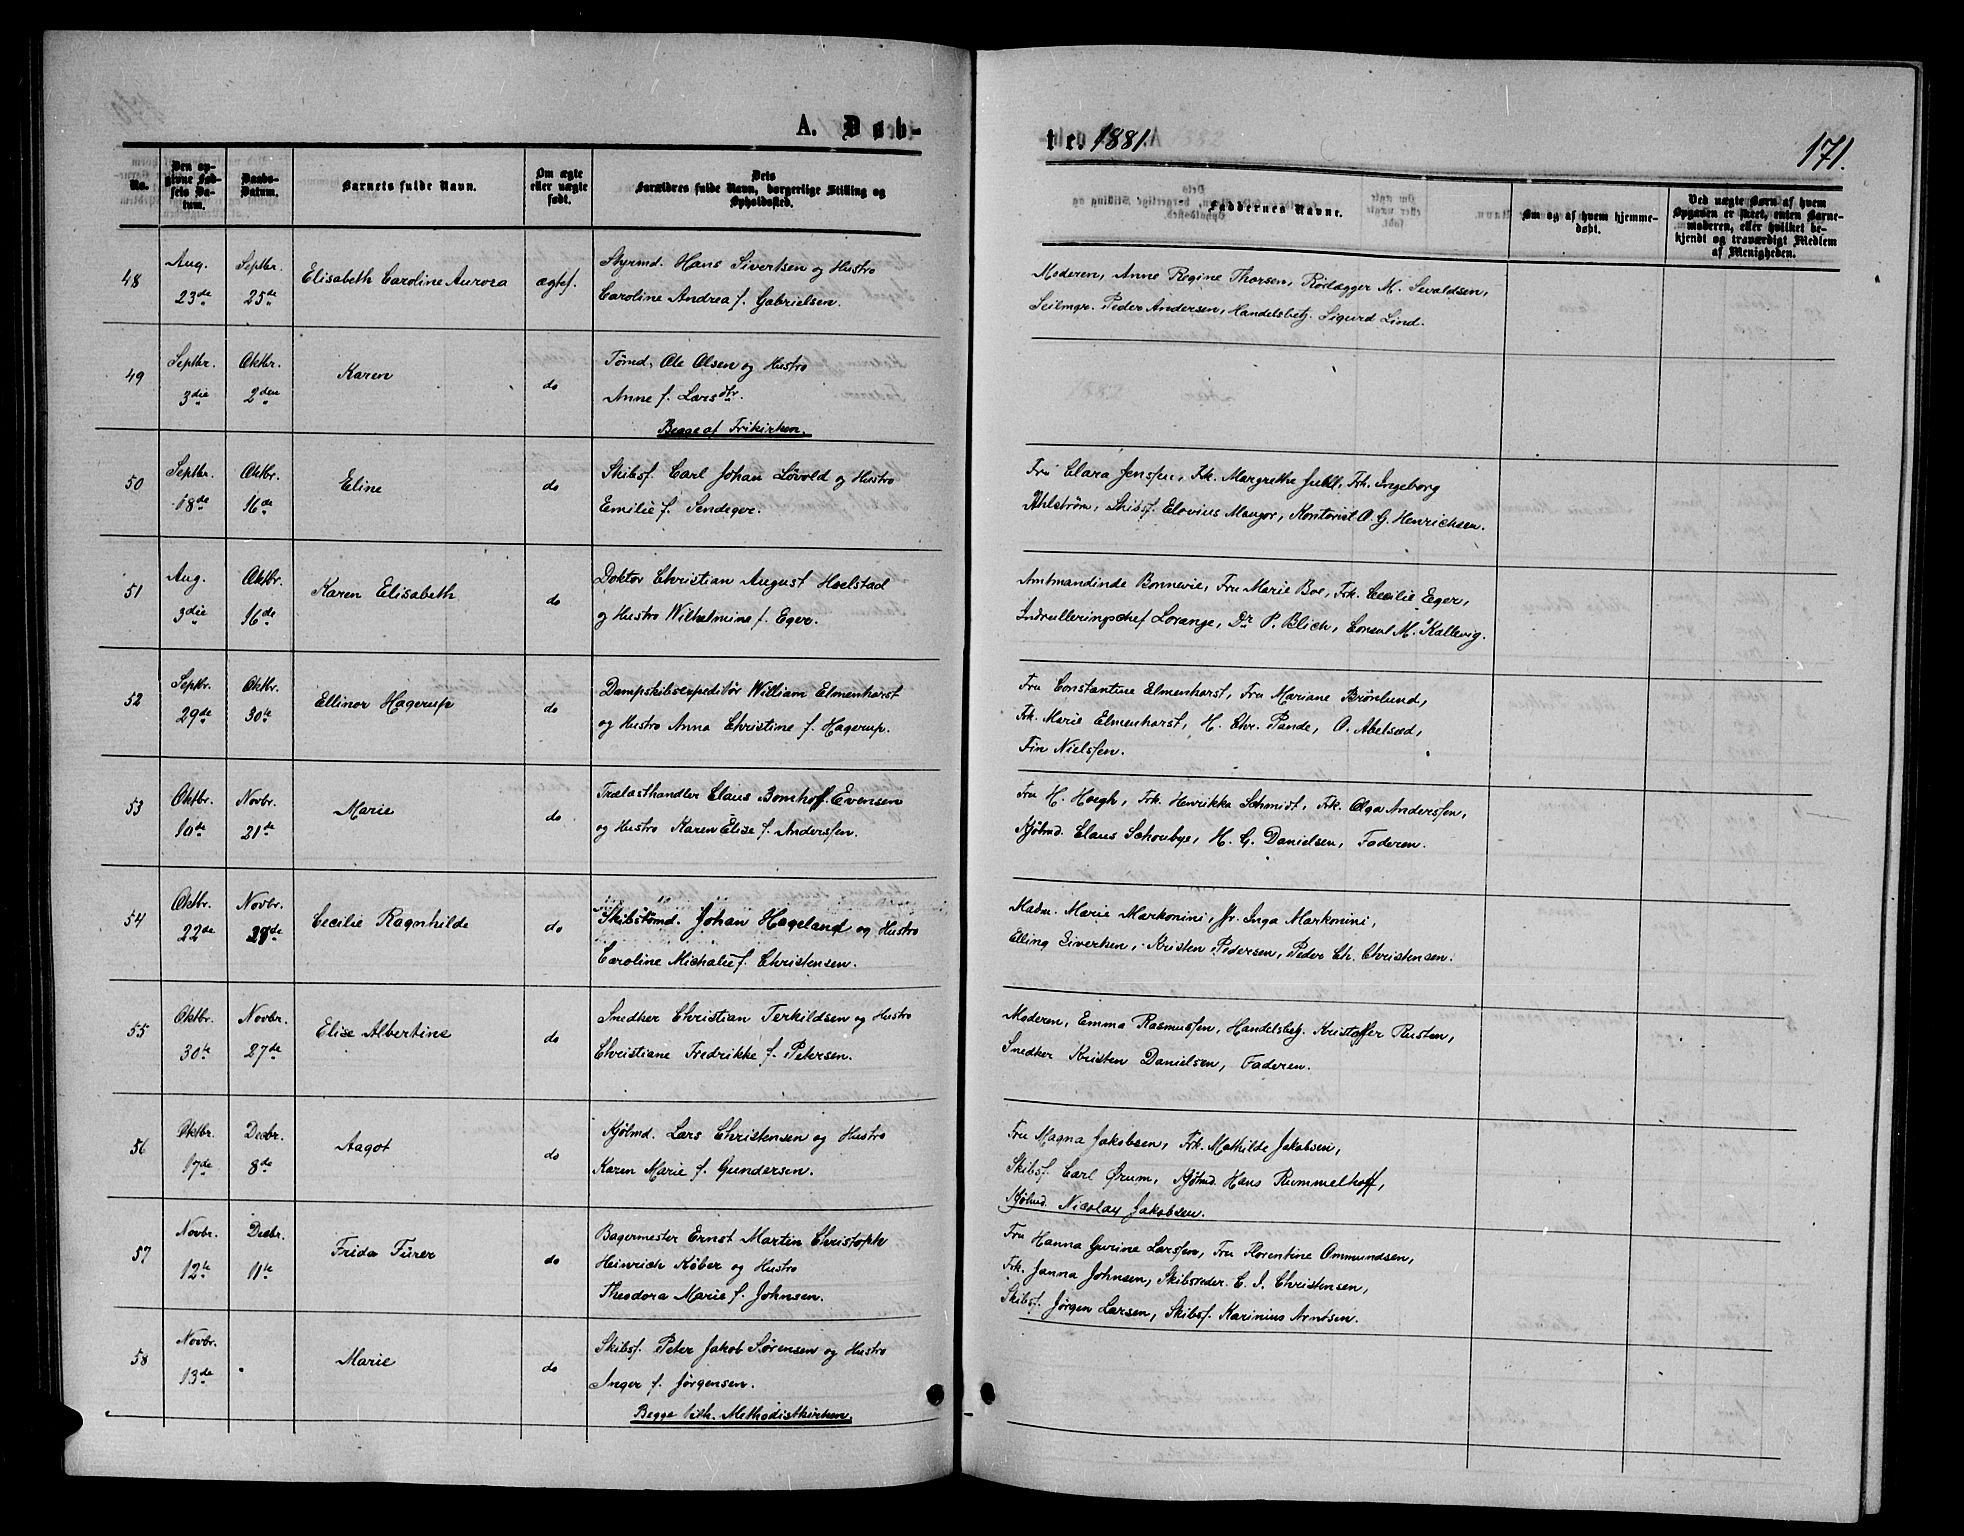 A. Døb-
No.
Den op-
givne Fød-
sels Da-
tum.
Daabs-
Datum.
Barnets fulde Navn.
Om ægte
eller uægte
født.
Dets
Forældres fulde Navn, borgerlige Stilling og
Opholdssted.
48
Aug.
23de
Septbr.
25de
Elisabeth Caroline Aurora
ægtef.
Styrmd. Hans Sivertsen og Hustro
Caroline Andrea f. Gabrielsen.
49
Septbr.
3die
Oktbr.
2den
Karen
do
Tømd. Ole Olsen og Hustro
Anne f. Larsdtr.
Begge af Frikirken.
50
Septbr.
18de
Oktbr.
16de
Eline
do
Skibsf. Carl Johan Løvold og Hustro
Emilie f.
51
Aug.
3die
Oktbr.
16de
Karen Elisabeth
do
Doktor Christian August Hoelstad
og Hustro Wilhelmine f. Eger.
52
Septbr.
29de
Oktbr.
30te
Ellinor Hagerup
do
Dampskibsexpeditør William Elmenhorst
og Hustro Anna Christine f. Hagerup.
53
Oktbr.
10de
Novbr.
21de
Marie
do
Trælasthandler Claus Bomhoff Evensen
og Hustro Karen Elise f. Anderssen.
54
Oktbr.
22de
Novbr.
Cecilie Ragnhilde
do
Skibstømd. Johan Hageland og Hustro
Caroline Michalie f. Christensen.
55
Oktbr.
30te
Novbr.
27de
Elise Albertine
do
Snedker Christian Terkildsen og Hustro
Christiane Fredrikke f. Petersen.
56
Oktbr.
17de
Decbr.
8de
Aagot
do
Kjølmd. Lars Christensen og Hustro
Karen Marie f. Gundersen.
57
Novbr.
12te
Decbr.
11te
Frida Fürer
do
Bagermester Ernst Martin Christoph
Heinrich Köber og Hustro
Theodora Marie f. Johnsen.
58
Novbr.
13de
Marie
do
Skibsf. Peter Jakob Sørensen og Hustro
Inger f. Jørgensen.
Begge tilh. Methodistkirken.
te. 1881.
171.
Faddernes Navne.
Om og af hvem hjemme-
døbt.
Ved uægte Børn af hvem
Opgaven er skeet, enten Barne-
moderen, eller hvilket be-
kjendt og troværdigt Medlem
af Menigheden.
Moderen, Anne Regine Thorsen, Rørlægger M. Sevaldsen,
Seilmgr. Peder Andersen, Handelsbetj. Sigurd Lind.
Fru Clara Jenssen, Frk. Margrethe Juell, Frk. Ingeborg
Ahlström, Skibsf. Elovius Mangor, Kontorist O. G. Henrichsen.
Amtmandinde Bonnevie, Fru Marie Boe, Frk. Cecilie Eger,
Indrulleringschef Lorange, Dr P. Blich, Consul M. Kallevig.
Fru Constantine Elmenhorst, Fru Mariane Brønlund,
Frk. Marie Elmenhorst, H. Chr. Pande, O. Abelsæd,
Fin Nielssen.
Fru H. Høegh, Frk. Henrikka Schmidt, Frk. Olga Anderssen,
Kjølmd. Claus Schoubye, H. G. Danielsen, Faderen.
Madm. Marie Markonini, Jfr. Inga Markonini,
Elling Sivertsen, Kristen Pedersen, Peder Ch. Christensen.
Moderen, Emma Rasmussen, Handelsbetj. Kristoffer Rusten,
Snedker Kristen Danielsen, Faderen.
Fru Magna Jakobsen, Frk. Mathilde Jakobsen,
Skibsf. Carl Ørum, Kjølmd. Hans Rummelhoff,
Kjølmd. Nicolay Jakobsen.
Fru Hanna Gurine Larssen, Fru Florentine Ommundsen,
Frk. Janna Johnsen, Skibsreder C. I. Christensen,
Skibsf. Jørgen Larsen, Skibsf. Karinius Arntsen.